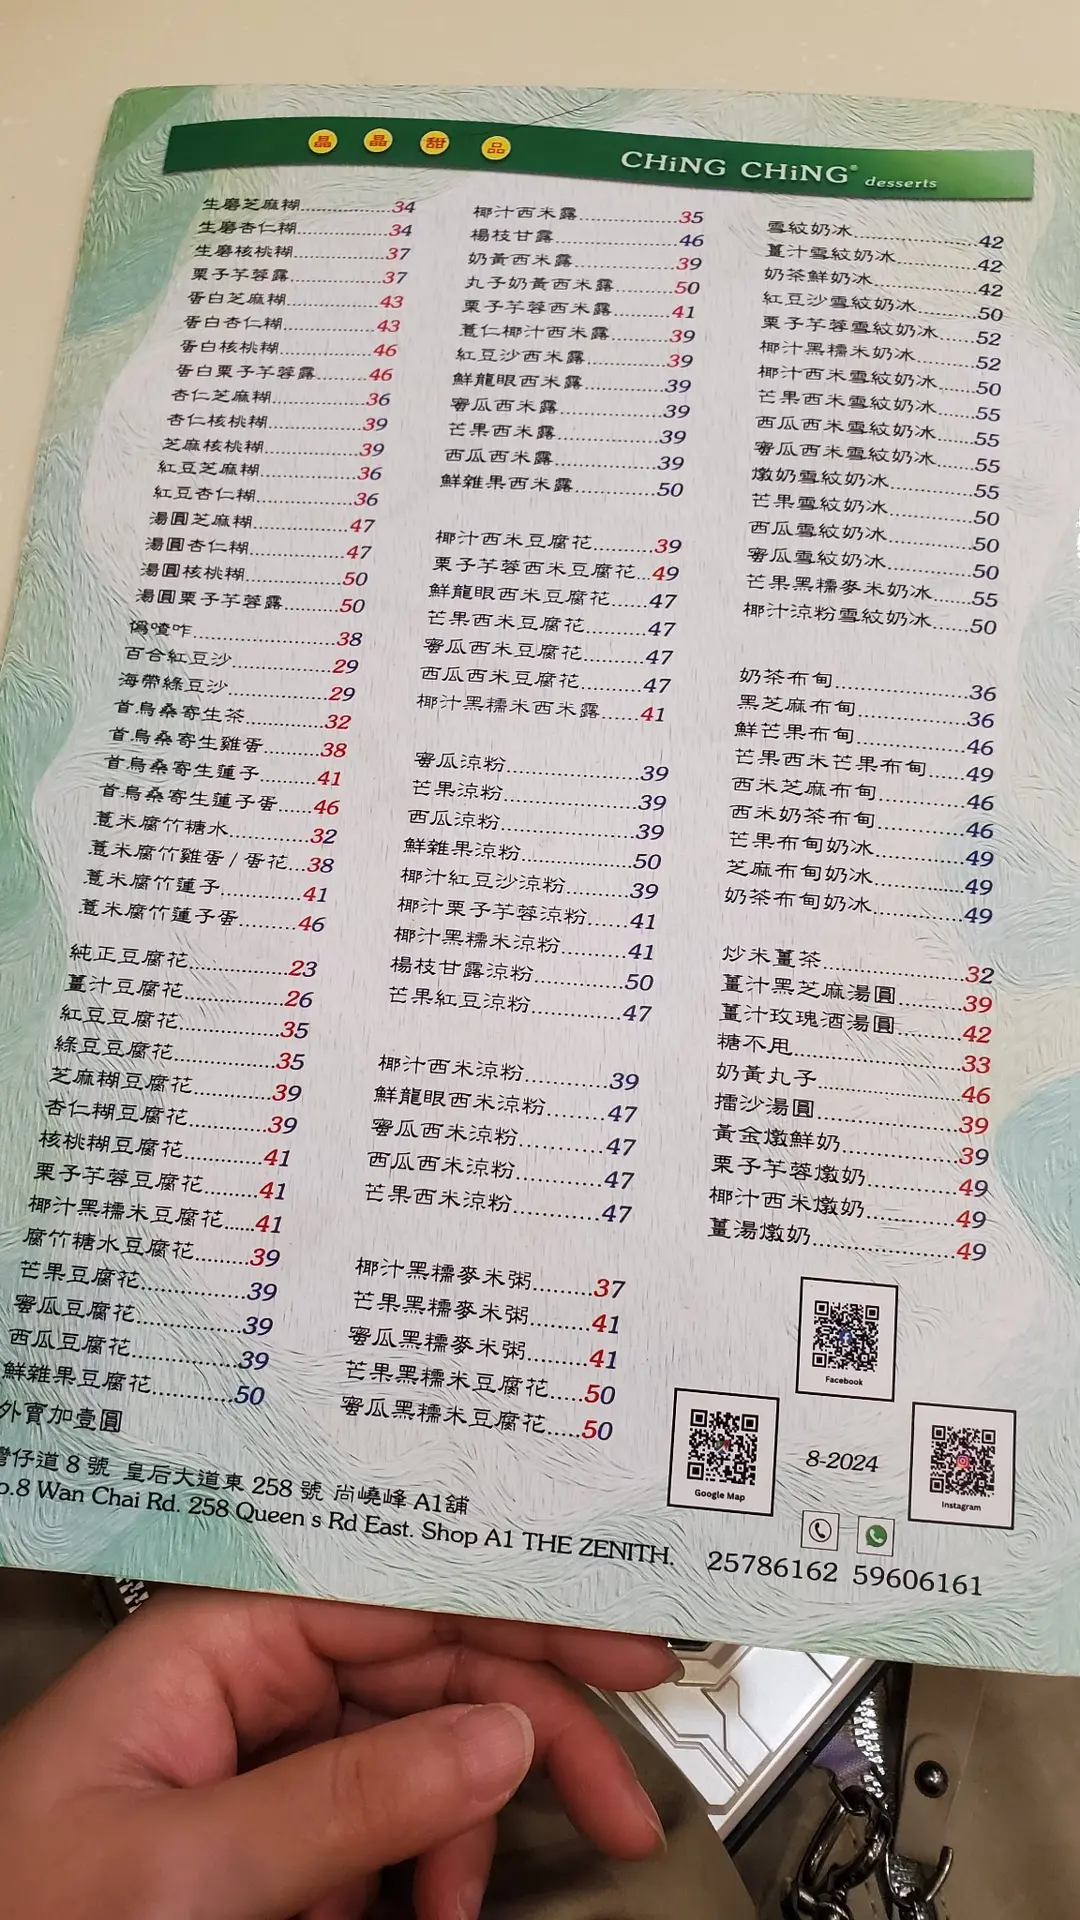 晶晶甜品
CHiNG CHiNG® desserts
生磨芝麻糊..........34
生磨杏仁糊..........34
生磨核桃糊..........37
栗子芋蓉露..........37
蛋白芝麻糊..........43
蛋白杏仁糊..........43
蛋白核桃糊..........46
蛋白栗子芋蓉露..........46
杏仁芝麻糊..........36
杏仁核桃糊..........39
芝麻核桃糊..........39
紅豆芝麻糊..........36
紅豆杏仁糊..........36
湯圓芝麻糊..........47
湯圓杏仁糊..........47
湯圓核桃糊..........50
湯圓栗子芋蓉露..........50
喳咋..........38
百合紅豆沙..........29
海帶綠豆沙..........29
首烏桑寄生茶..........32
首烏桑寄生雞蛋..........38
首烏桑寄生蓮子..........41
首烏桑寄生蓮子蛋..........46
薏米腐竹糖水..........32
薏米腐竹雞蛋/蛋花...38
薏米腐竹蓮子..........41
薏米腐竹蓮子蛋..........46
純正豆腐花..........23
薑汁豆腐花..........26
紅豆豆腐花..........35
綠豆豆腐花..........35
芝麻糊豆腐花..........39
杏仁糊豆腐花..........39
核桃糊豆腐花..........41
栗子芋蓉豆腐花..........41
椰汁黑糯米豆腐花.....41
腐竹糖水豆腐花..........39
芒果豆腐花..........39
蜜瓜豆腐花..........39
西瓜豆腐花..........39
鮮雜果豆腐花..........50
外賣加壹圓
椰汁西米露..........35
楊枝甘露..........46
奶黃西米露..........39
丸子奶黃西米露..........50
栗子芋蓉西米露..........41
薏仁椰汁西米露..........39
紅豆沙西米露..........39
鮮龍眼西米露..........39
蜜瓜西米露..........39
芒果西米露..........39
西瓜西米露..........39
鮮雜果西米露..........50
椰汁西米豆腐花..........39
栗子芋蓉西米豆腐花...49
鮮龍眼西米豆腐花.......47
芒果西米豆腐花..........47
蜜瓜西米豆腐花..........47
西瓜西米豆腐花..........47
椰汁黑糯米西米露......41
蜜瓜涼粉..........39
芒果涼粉..........39
西瓜涼粉..........39
鮮雜果涼粉..........50
椰汁紅豆沙涼粉..........39
椰汁栗子芋蓉涼粉......41
椰汁黑糯米涼粉..........41
楊枝甘露涼粉..........50
芒果紅豆涼粉..........47
椰汁西米涼粉..........39
鮮龍眼西米涼粉..........47
蜜瓜西米涼粉..........47
西瓜西米涼粉..........47
芒果西米涼粉..........47
椰汁黑糯麥米粥..........37
芒果黑糯麥米粥..........41
蜜瓜黑糯麥米粥..........41
芒果黑糯米豆腐花.....50
蜜瓜黑糯米豆腐花.....50
雪紋奶冰..........42
薑汁雪紋奶冰..........42
奶茶鮮奶冰..........42
紅豆沙雪紋奶冰..........50
栗子芋蓉雪紋奶冰......52
椰汁黑糯米奶冰..........52
椰汁西米雪紋奶冰......50
芒果西米雪紋奶冰......55
西瓜西米雪紋奶冰......55
蜜瓜西米雪紋奶冰......55
燉奶雪紋奶冰..........55
芒果雪紋奶冰..........50
西瓜雪紋奶冰..........50
蜜瓜雪紋奶冰..........50
芒果黑糯麥米奶冰......55
椰汁涼粉雪紋奶冰......50
奶茶布甸..........36
黑芝麻布甸..........36
鮮芒果布甸..........46
芒果西米芒果布甸......49
西米芝麻布甸..........46
西米奶茶布甸..........46
芒果布甸奶冰..........49
芝麻布甸奶冰..........49
奶茶布甸奶冰..........49
炒米薑茶..........32
薑汁黑芝麻湯圓..........39
薑汁玫瑰酒湯圓..........42
糖不甩..........33
奶黃丸子..........46
擂沙湯圓..........39
黃金燉鮮奶..........39
栗子芋蓉燉奶..........49
椰汁西米燉奶..........49
薑湯燉奶..........49
Facebook
Google Map
8-2024
Instagram
灣仔道 8 號 皇后大道東 258 號 尚嶢峰 A1舖
o.8 Wan Chai Rd. 258 Queen s Rd East. Shop A1 THE ZENITH.
25786162 59606161